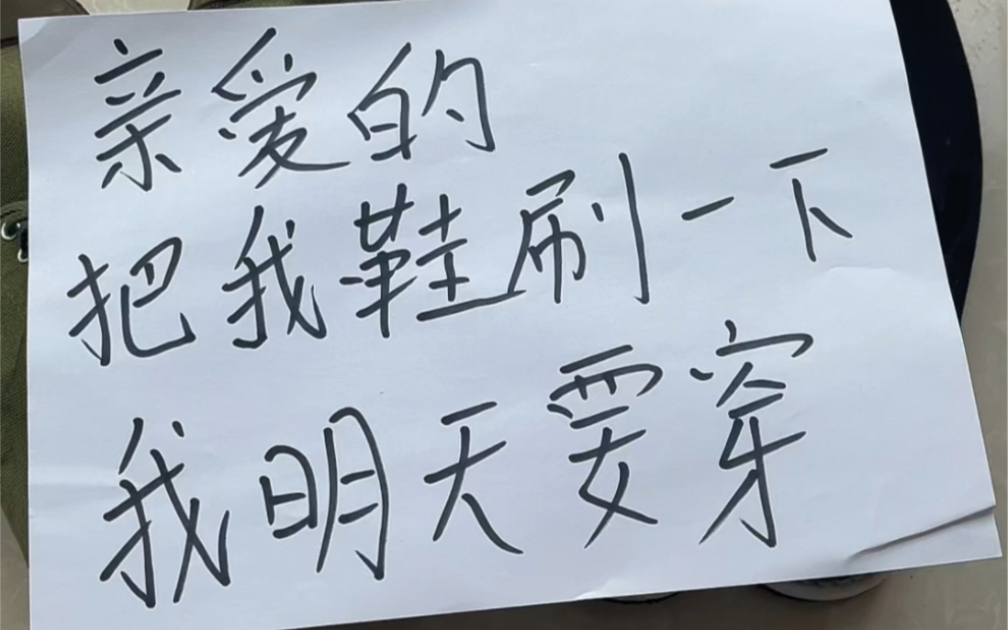 亲爱的
把我鞋刷一下
我明天要穿